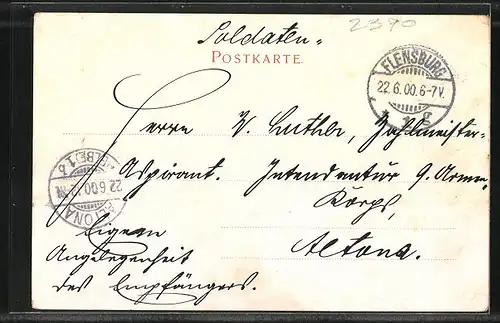 2390
Soldaten=
POSTKARTE.
FLENSBURG
22.6.00.6-7V.
* 1 g
Herrn W. Luthh, Zahlmeister-
Aspirant. Intendantur 9. Armee,
Korps,
Altona.
ALTONA
22.6.00
(ELBE) 1 b
Eigene
Angelegenheit
des Empfängers.